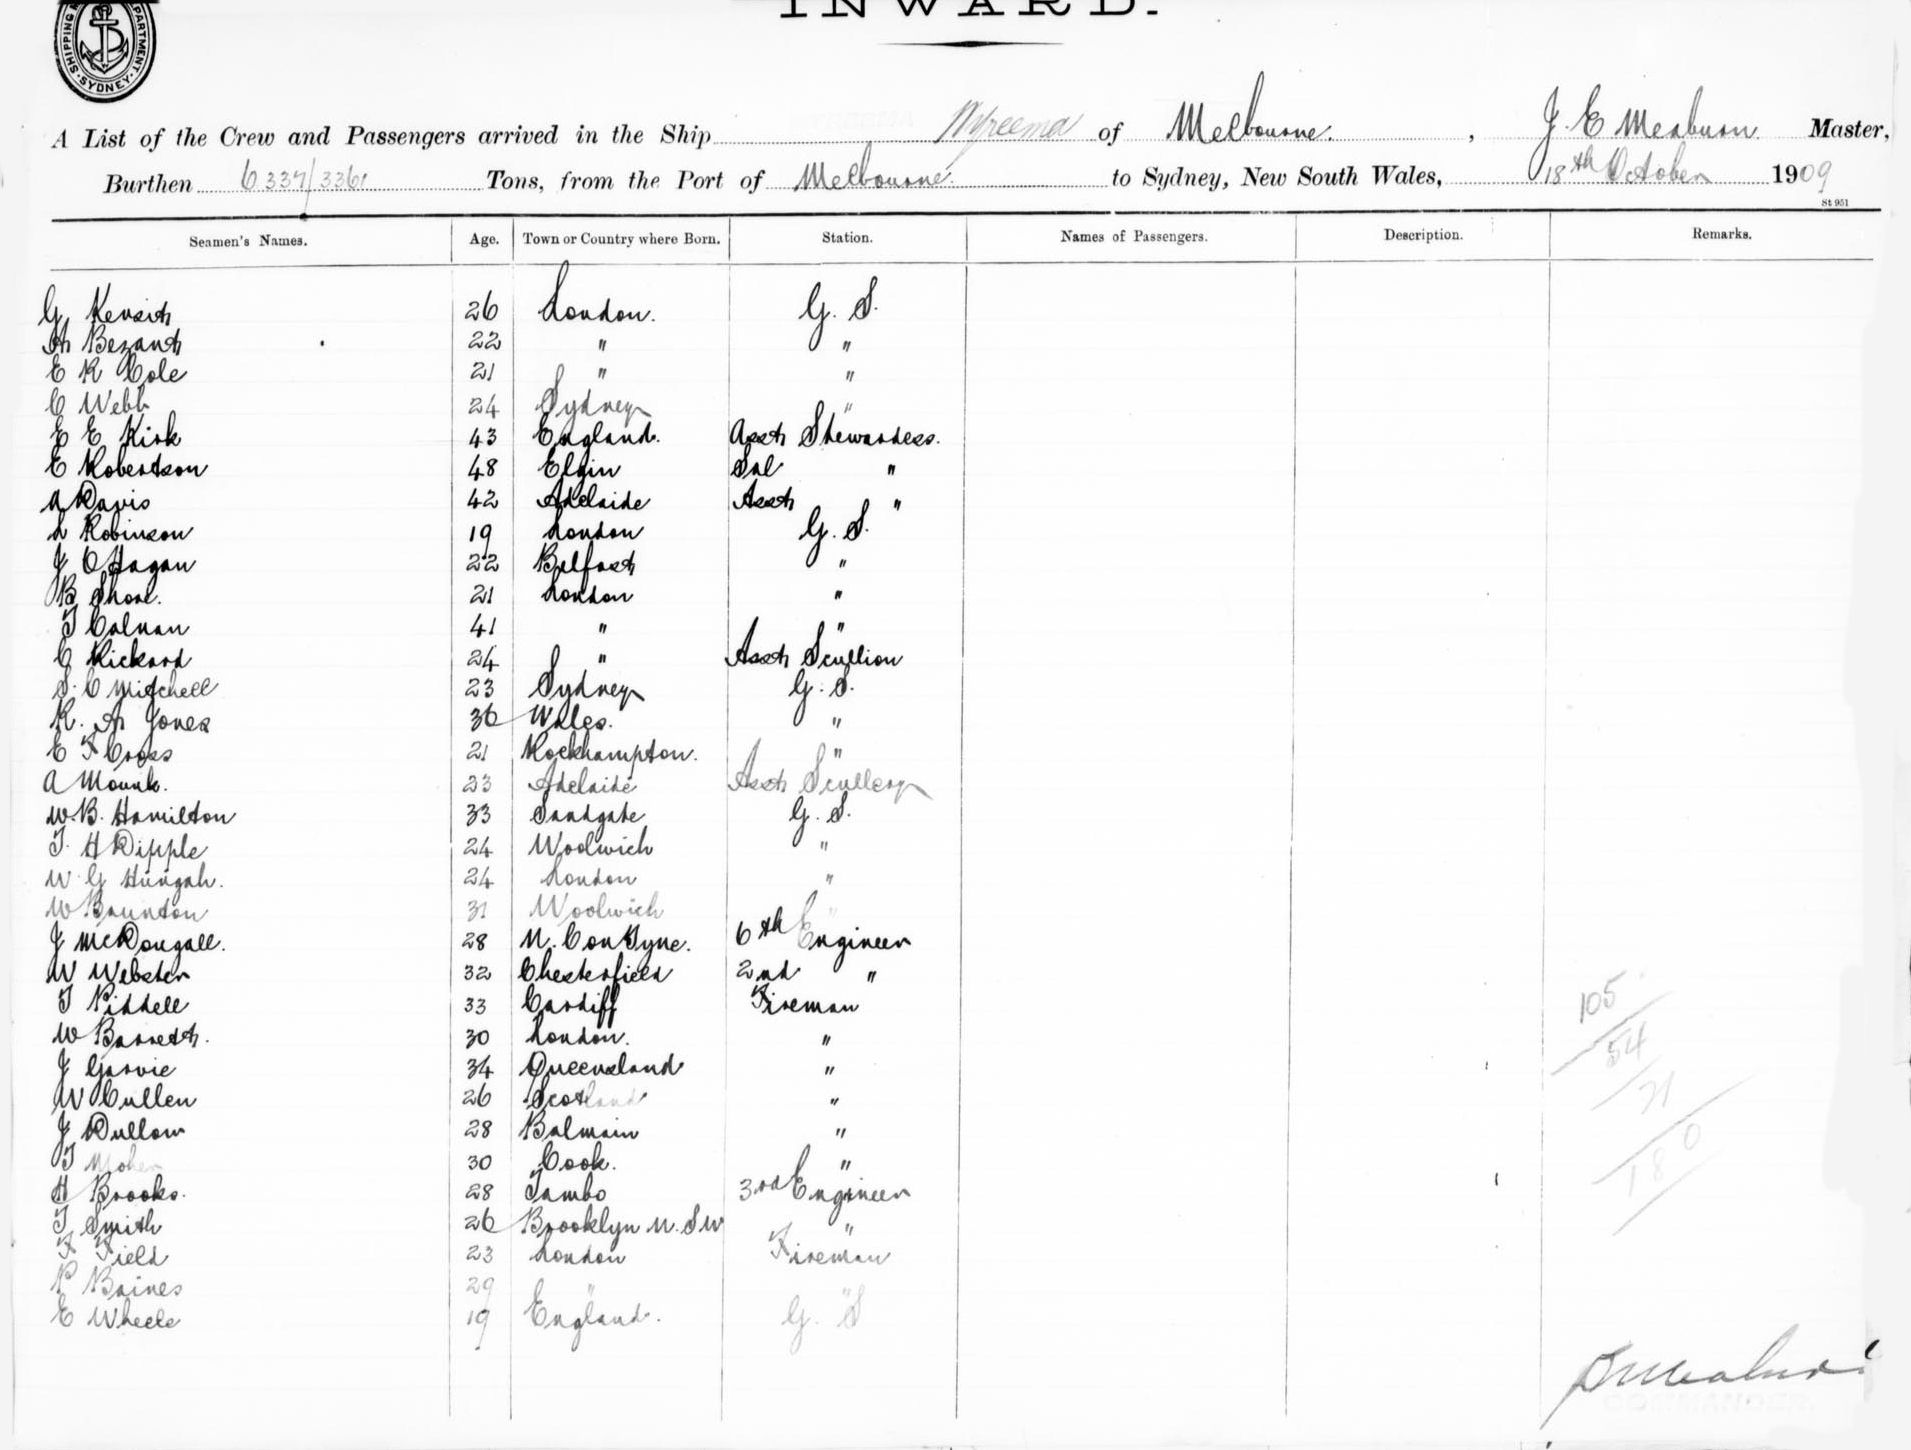 INWARD.
SHIPPING MASTER'S DEPARTMENT · SYDNEY ·
A List of the Crew and Passengers arrived in the Ship Wyreema of Melbourne. , J. E Meaburn Master,
Burthen 6337/3361 Tons, from the Port of Melbourne. to Sydney, New South Wales, 18th October 1909
St 951
Seamen's Names. Age. Town or Country where Born. Station. Names of Passengers. Description. Remarks.
G Kensit 26 London. G. S.
H Bezant 22 " "
E R Cole 21 " "
C Webb 24 Sydney "
E E Kirk 43 England. Asst Stewardess.
E Robertson 48 Elgin Sal "
A Davis 42 Adelaide Asst "
L Robinson 19 London G. S.
J O'Hagan 22 Belfast "
B Shore. 21 London "
T Calnan 41 " "
C Rickard 24 " Asst Scullion
S. C Mitchell 23 Sydney G. S.
R. H Jones 36 Wales. "
E F Cross 21 Rockhampton. "
A Mounk. 23 Adelaide Asst Scullery
W. B. Hamilton 33 Sandgate G. S.
T. H Dipple 24 Woolwich "
W G 24 London "
W Baunton 31 Woolwich "
J McDougall. 28 N. C on Tyne. 6th Engineer
W Webster 32 Chesterfield 2nd "
T Riddell 33 Cardiff Fireman
W Barrett. 30 London. "
J Garvie 34 Queensland "
W Cullen 26 Scotland "
J Dullow 28 Balmain "
T Moher 30 Cook. "
H Brooks. 28 Tambo 3rd Engineer
T Smith 26 Brooklyn N. S W "
F Field 23 London Fireman
P Baines 29 " "
E Wheele 19 England. G. S
105
54
21
180
COMMANDER.